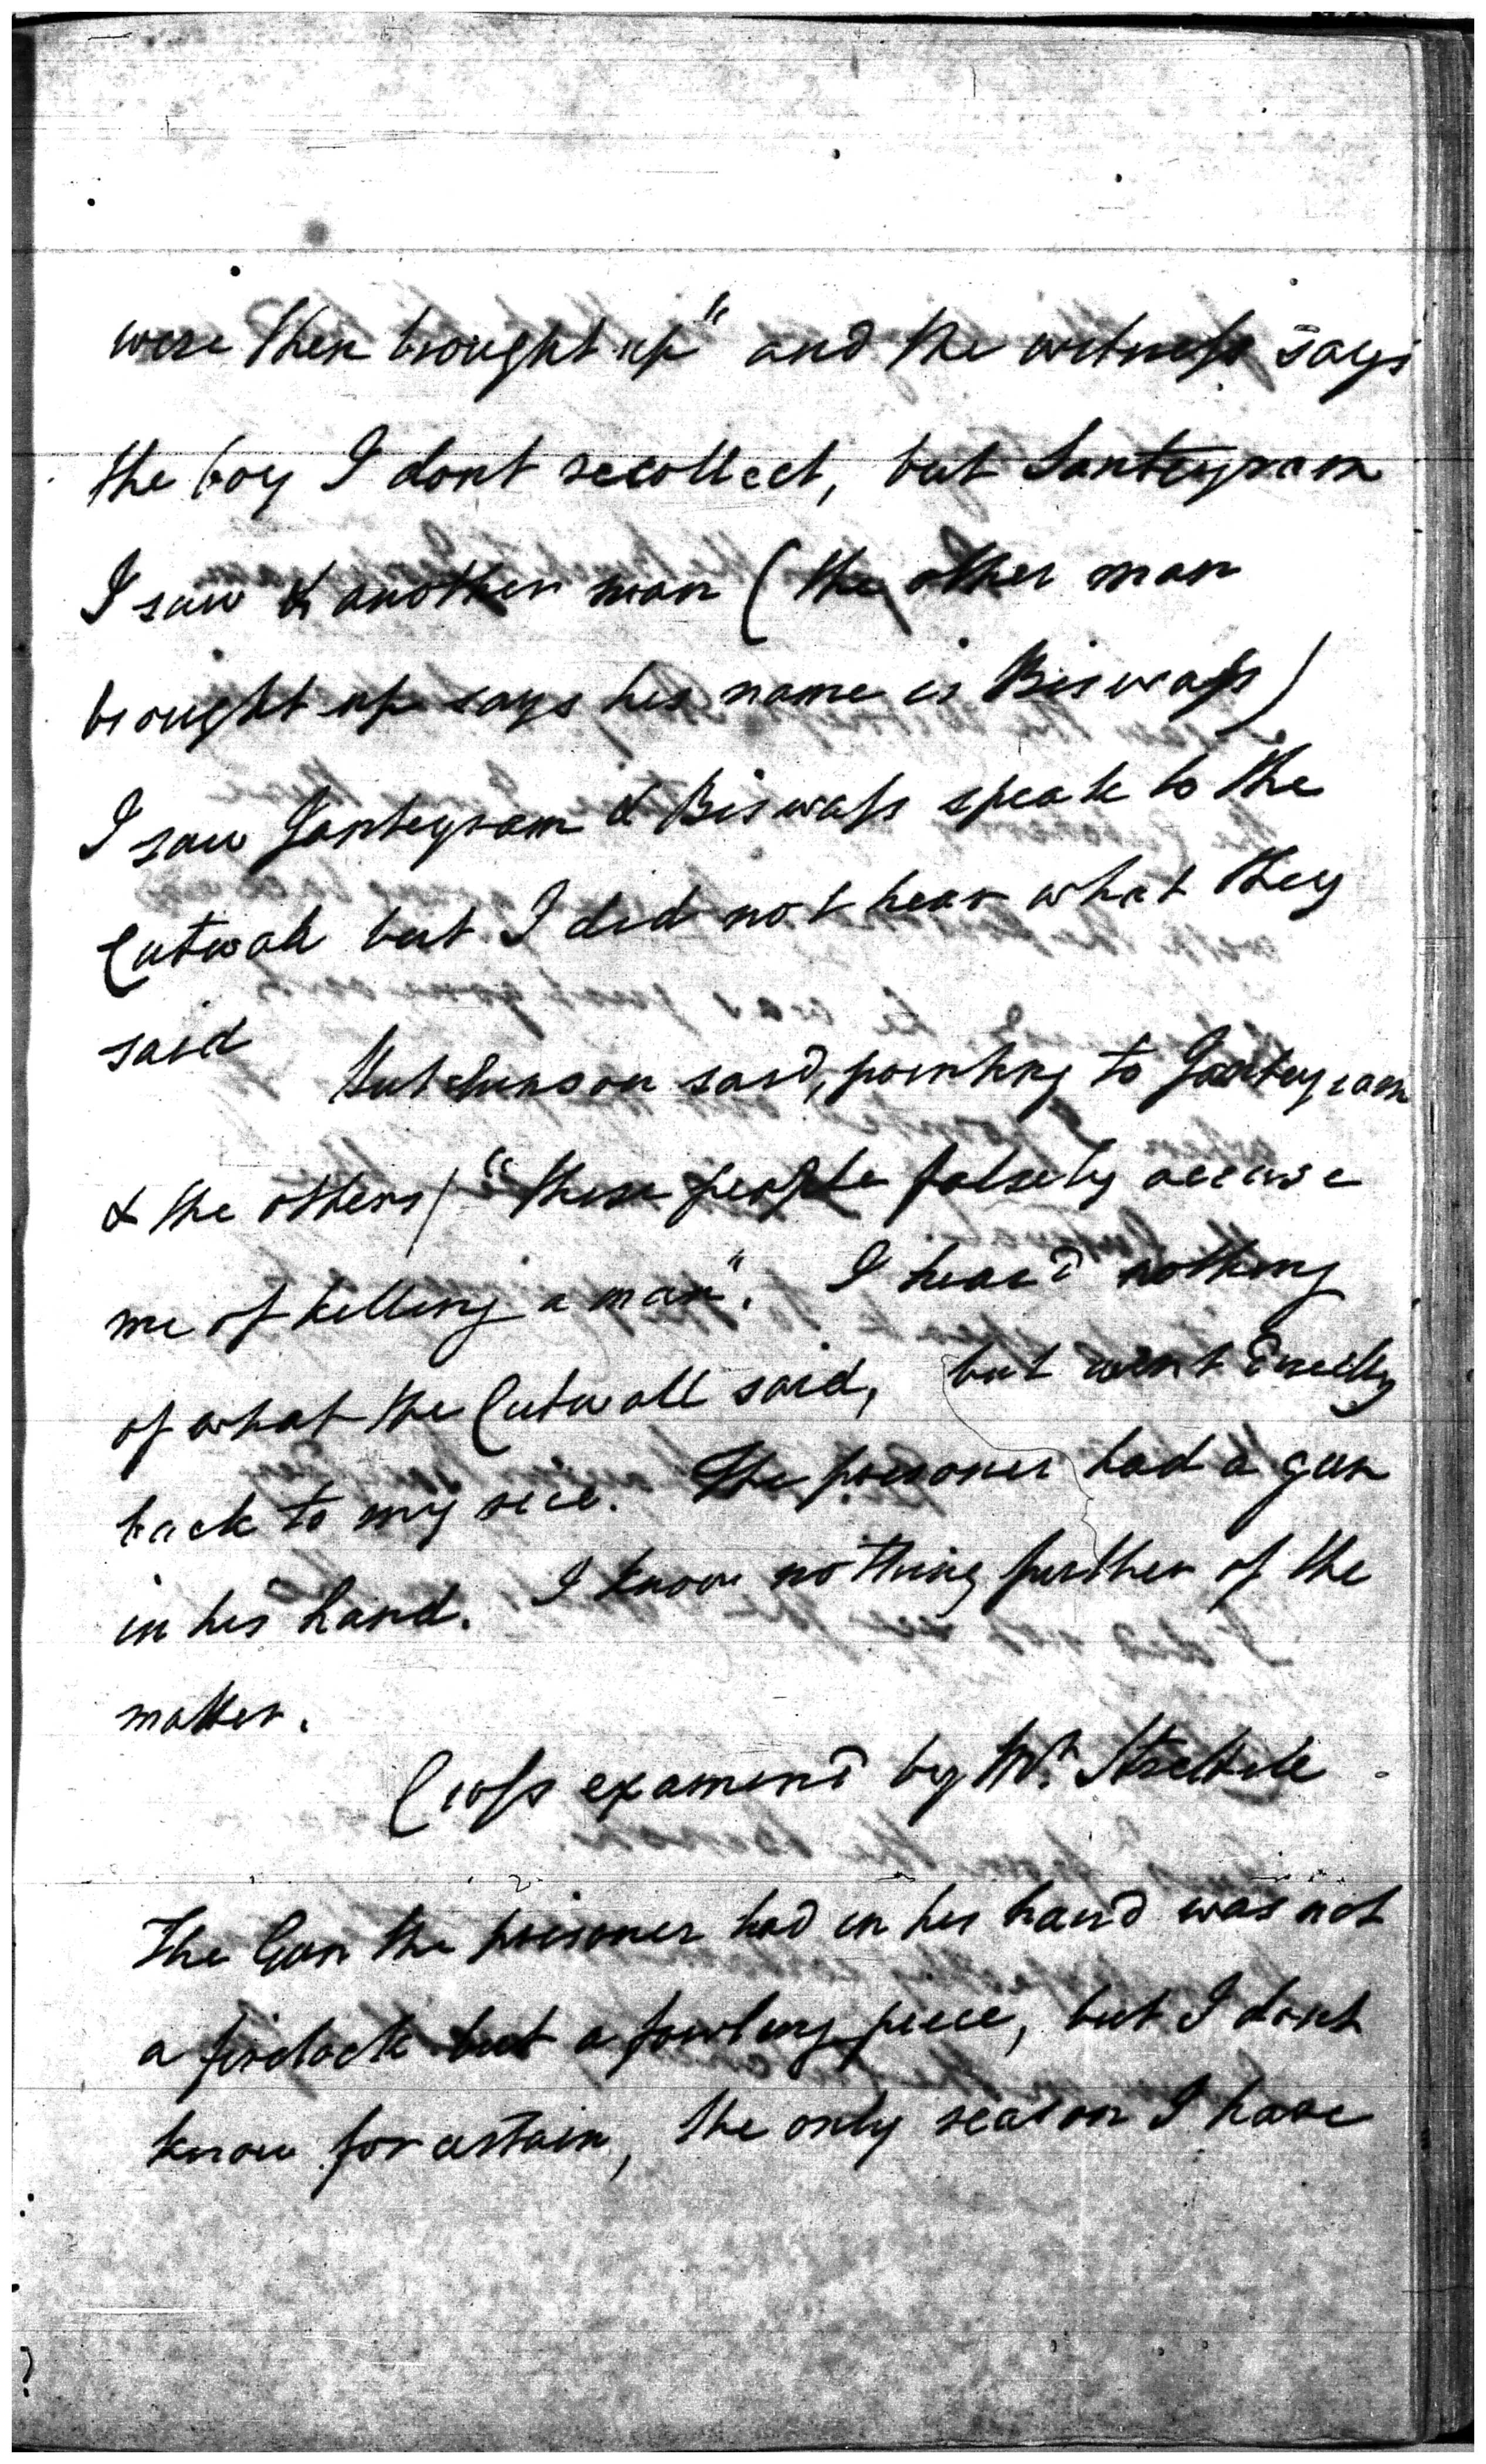 were then brought up" and the witness says
the boy I dont recollect, but Santeyram
I saw & another man (the other man
brought up says his name is Biswass)
I saw Santeyram & Biswass speak to the
Cutwall but I did not hear what they
said
Hutchinson said, pointing to Santeyram
& the others/ "these people falsely accuse
me of killing a man". I heard nothing
of what the Cutwall said, but went directly
back to my rice. The prisoner had a gun
in his hand. I know nothing further of the
matter.
Cross examined by Mr. Strettell
The Gun the prisoner had in his hand was not
a firelock but a fowling piece, but I dont
know for certain, the only reason I have